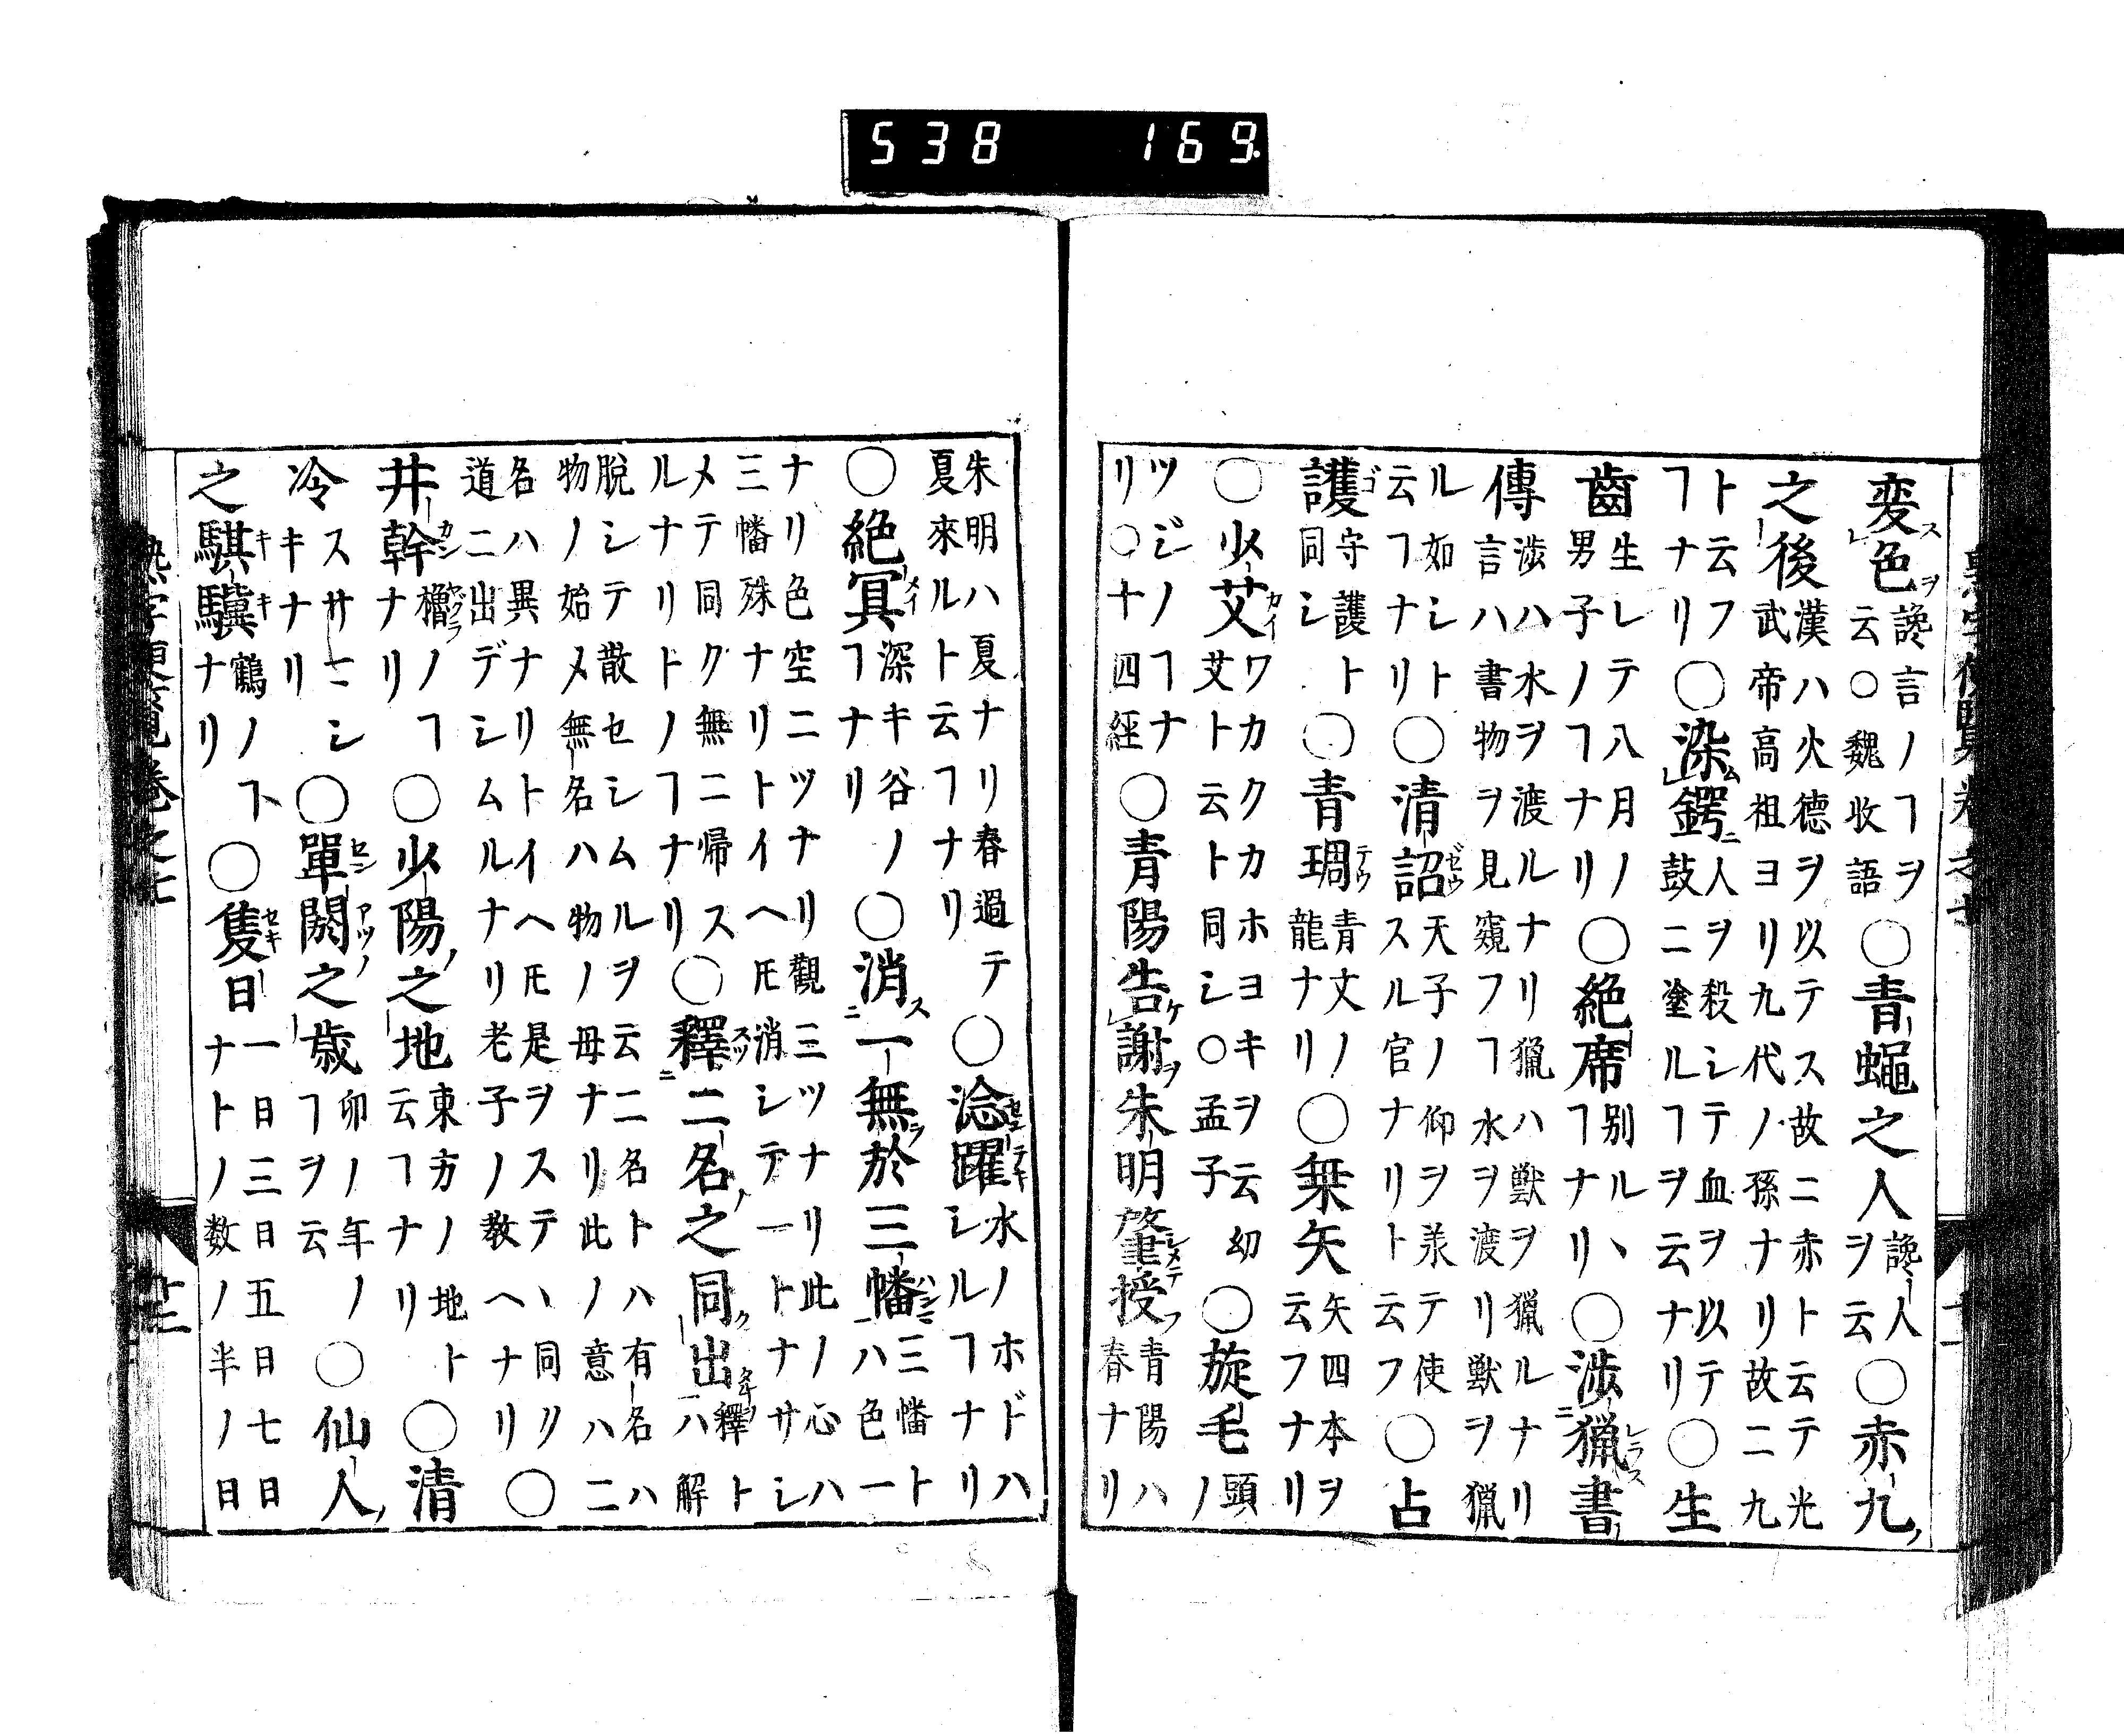 538 169
変色 讒言ノヿヲ云○魏收語 ○青蠅之人 讒人ヲ云 ○赤九
之後 漢ハ火徳ヲ以テス故ニ赤ト云テ光武帝高祖ヨリ九代ノ孫ナリ故ニ九
ト云フヿナリ ○染鍔 人ヲ殺シテ血ヲ以テ鼓ニ塗ルヿヲ云ナリ ○生
齒 生レテ八月ノ男子ノヿナリ ○絶席 別ルヿナリ、 ○渉猟書
傳 渉ハ水ヲ渡ルナリ猟ハ獣ヲ猟ルナリ言ハ書物ヲ見窺フヿ水ヲ渡リ獣ヲ猟
ル如シト云フヿナリ ○清詔 天子ノ仰ヲ羕テ使スル官ナリト云フ ○占
護 守護ト同シ ○青琱 青丈ノ龍ナリ ○桒矢 矢四本ヲ云フナリ
○少艾 ワカクカホヨキヲ云幼艾ト云ト同シ○孟子 ○旋毛 頭ノ
ツジノヿナリ○十四經 ○青陽告謝朱明肇授 青陽ハ春ナリ
朱明ハ夏ナリ春過テ夏來ルト云フヿナリ ○淰躍 水ノホドハシルヿナリ
○絶冥 深キ谷ノヿナリ ○消一無於三幡 三幡トハ色一
ナリ色空ニツナリ觀三ツナリ此ノ心ハ三幡殊ナリトイヘ𪜈消シテ一トナサシ
メテ同ク無ニ帰スルナリトノヿナリ ○釋二名之同出 釋トハ解
脱シテ散セシムルヲ云二名トハ有名ハ物ノ始メ無名ハ物ノ母ナリ此ノ意ハ二
名ハ異ナリトイヘ𪜈是ヲステヽ同ク道ニ出デシムルナリ老子ノ教ヘナリ ○
井幹 櫓ノヿナリ ○少陽之地 東方ノ地ト云フヿナリ ○清
冷 スサーシキナリ ○單閼之歳 卯ノ年ノヿヲ云 ○仙人
之騏驥 鶴ノヿナリ ○隻日 一日三日五日七日ナトノ数ノ半ノ日